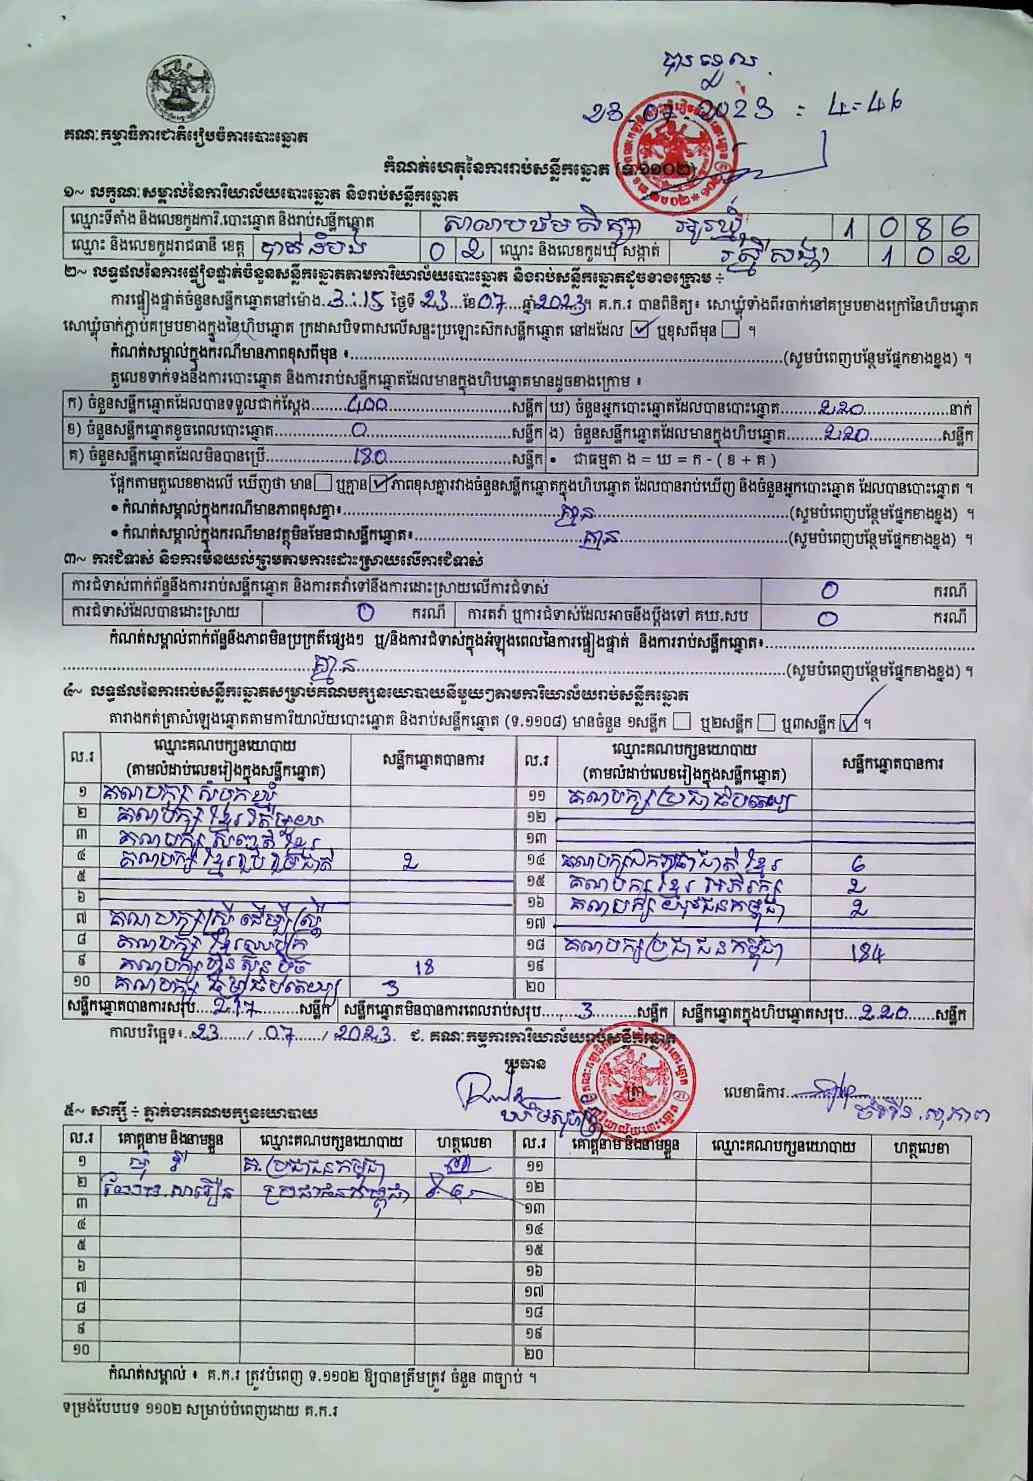 បានទទួល
23.07.2023 : 4:46
គណៈកម្មាធិការជាតិរៀបចំការបោះឆ្នោត
កំណត់ហេតុនៃការរាប់សន្លឹកឆ្នោត (ទ.១១០២)
១~ លក្ខណៈសម្គាល់នៃការិយាល័យបោះឆ្នោត និងរាប់សន្លឹកឆ្នោត
ឈ្មោះទីតាំង និងលេខកូដការិ.បោះឆ្នោត និងរាប់សន្លឹកឆ្នោត សាលាបឋមសិក្សា 1 0 8 6
ឈ្មោះ និងលេខកូដរាជធានី ខេត្ត បាត់ដំបង 0 2 ឈ្មោះ និងលេខកូដឃុំ សង្កាត់ រស្មីសង្ហា 1 0 2
២~ លទ្ធផលនៃការផ្ទៀងផ្ទាត់ចំនួនសន្លឹកឆ្នោតតាមការិយាល័យបោះឆ្នោត និងរាប់សន្លឹកឆ្នោតដូចខាងក្រោម ÷
ការផ្ទៀងផ្ទាត់ចំនួនសន្លឹកឆ្នោតនៅម៉ោង 3:15 ថ្ងៃទី 23 ខែ 07 ឆ្នាំ 2023។ គ.ក.រ បានពិនិត្យ៖ សោឃ្លុំទាំងពីរចាក់នៅគម្របខាងក្រៅនៃហិបឆ្នោត
សោឃ្លុំចាក់ភ្ជាប់គម្របខាងក្នុងនៃហិបឆ្នោត ក្រដាសបិទពាសលើសន្ទះប្រឡោះសឹកសន្លឹកឆ្នោត នៅដដែល ☑ ឬខុសពីមុន ☐ ។
កំណត់សម្គាល់ក្នុងករណីមានភាពខុសពីមុន ៖ (សូមបំពេញបន្ថែមផ្នែកខាងខ្នង) ។
តួលេខទាក់ទងនឹងការបោះឆ្នោត និងការរាប់សន្លឹកឆ្នោតដែលមានក្នុងហិបឆ្នោតមានដូចខាងក្រោម ៖
ក) ចំនួនសន្លឹកឆ្នោតដែលបានទទួលជាក់ស្តែង 400 សន្លឹក ឃ) ចំនួនអ្នកបោះឆ្នោតដែលបានបោះឆ្នោត 220 នាក់
ខ) ចំនួនសន្លឹកឆ្នោតខូចពេលបោះឆ្នោត 0 សន្លឹក ង) ចំនួនសន្លឹកឆ្នោតដែលមានក្នុងហិបឆ្នោត 220 សន្លឹក
គ) ចំនួនសន្លឹកឆ្នោតដែលមិនបានប្រើ 180 សន្លឹក • ជាធម្មតា ង = ឃ = ក - ( ខ + គ )
ផ្អែកតាមតួលេខខាងលើ ឃើញថា មាន ☐ ឬគ្មាន ☑ ភាពខុសគ្នារវាងចំនួនសន្លឹកឆ្នោតក្នុងហិបឆ្នោត ដែលបានរាប់ឃើញ និងចំនួនអ្នកបោះឆ្នោត ដែលបានបោះឆ្នោត ។
• កំណត់សម្គាល់ក្នុងករណីមានភាពខុសគ្នា៖ គ្មាន (សូមបំពេញបន្ថែមផ្នែកខាងខ្នង) ។
• កំណត់សម្គាល់ក្នុងករណីមានវត្ថុមិនមែនជាសន្លឹកឆ្នោត៖ គ្មាន (សូមបំពេញបន្ថែមផ្នែកខាងខ្នង) ។
៣~ ការជំទាស់ និងការមិនយល់ព្រមតាមការដោះស្រាយលើការជំទាស់
ការជំទាស់ពាក់ព័ន្ធនឹងការរាប់សន្លឹកឆ្នោត និងការតវ៉ាទៅនឹងការដោះស្រាយលើការជំទាស់ 0 ករណី
ការជំទាស់ដែលបានដោះស្រាយ 0 ករណី ការតវ៉ា ឬការជំទាស់ដែលអាចនឹងប្តឹងទៅ គឃ.សប 0 ករណី
កំណត់សម្គាល់ពាក់ព័ន្ធនឹងភាពមិនប្រក្រតីផ្សេងៗ ឬ/និងការជំទាស់ក្នុងអំឡុងពេលនៃការផ្ទៀងផ្ទាត់ និងការរាប់សន្លឹកឆ្នោត៖
គ្មាន (សូមបំពេញបន្ថែមផ្នែកខាងខ្នង) ។
៤~ លទ្ធផលនៃការរាប់សន្លឹកឆ្នោតសម្រាប់គណបក្សនយោបាយនីមួយៗតាមការិយាល័យរាប់សន្លឹកឆ្នោត
តារាងកត់ត្រាសំឡេងឆ្នោតតាមការិយាល័យបោះឆ្នោត និងរាប់សន្លឹកឆ្នោត (ទ.១១០៨) មានចំនួន ១សន្លឹក ☐ ឬ២សន្លឹក ☐ ឬ៣សន្លឹក ☑ ។
ល.រ ឈ្មោះគណបក្សនយោបាយ (តាមលំដាប់លេខរៀងក្នុងសន្លឹកឆ្នោត) សន្លឹកឆ្នោតបានការ ល.រ ឈ្មោះគណបក្សនយោបាយ (តាមលំដាប់លេខរៀងក្នុងសន្លឹកឆ្នោត) សន្លឹកឆ្នោតបានការ
១ គណបក្ស សំបុកឃ្មុំ ១១ គណបក្សប្រជាធិបតេយ្យ
២ គណបក្ស ខ្មែរ តែមួយ ១២
៣ គណបក្ស ខ្មែរ ១៣
៤ គណបក្ស ខ្មែររួបរួមជាតិ 2 ១៤ គណបក្សឯកភាពជាតិខ្មែរ 6
៥ ១៥ គណបក្ស ខ្មែរ អភិរក្ស 2
៦ ១៦ គណបក្ស យុវជនកម្ពុជា 2
៧ គណបក្សស្ត្រី ដើម្បីស្ត្រី ១៧
៨ គណបក្ស ខ្មែរឈប់ក្រ ១៨ គណបក្សប្រជាជនកម្ពុជា 184
៩ គណបក្សហ៊្វុនស៊ិនប៉ិច 18 ១៩
១០ គណបក្ស ធម្មាធិបតេយ្យ 3 ២០
សន្លឹកឆ្នោតបានការសរុប 217 សន្លឹក សន្លឹកឆ្នោតមិនបានការពេលរាប់សរុប 3 សន្លឹក សន្លឹកឆ្នោតក្នុងហិបឆ្នោតសរុប 220 សន្លឹក
កាលបរិច្ឆេទ៖ 23 / 07 / 2023 ជ. គណៈកម្មការការិយាល័យរាប់សន្លឹកឆ្នោត
ប្រធាន
ត្រា
លេខាធិការ
៥~ សាក្សី ÷ ភ្នាក់ងារគណបក្សនយោបាយ
ល.រ គោត្តនាម និងនាមខ្លួន ឈ្មោះគណបក្សនយោបាយ ហត្ថលេខា ល.រ គោត្តនាម និងនាមខ្លួន ឈ្មោះគណបក្សនយោបាយ ហត្ថលេខា
១ គ.ប្រជាជនកម្ពុជា ១១
២ ១២
៣ ១៣
៤ ១៤
៥ ១៥
៦ ១៦
៧ ១៧
៨ ១៨
៩ ១៩
១០ ២០
កំណត់សម្គាល់ ៖ គ.ក.រ ត្រូវបំពេញ ទ.១១០២ ឱ្យបានត្រឹមត្រូវ ចំនួន ៣ច្បាប់ ។
ទម្រង់បែបបទ ១១០២ សម្រាប់បំពេញដោយ គ.ក.រ